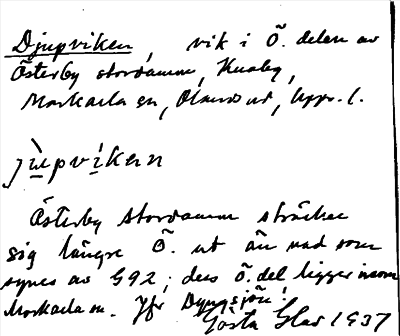 Djupviken, vik i Ö. delen av
Österby stordamm, Knaby,
Morkarla sn, Olands hd, Upps. l.
jùpvíken
Österby stordamm sträcker
sig längre Ö. ut än vad som
synes av G92; dess ö. del ligger inom
Morkarla sn. Jfr Dypsjön!
Gösta Glad 1937